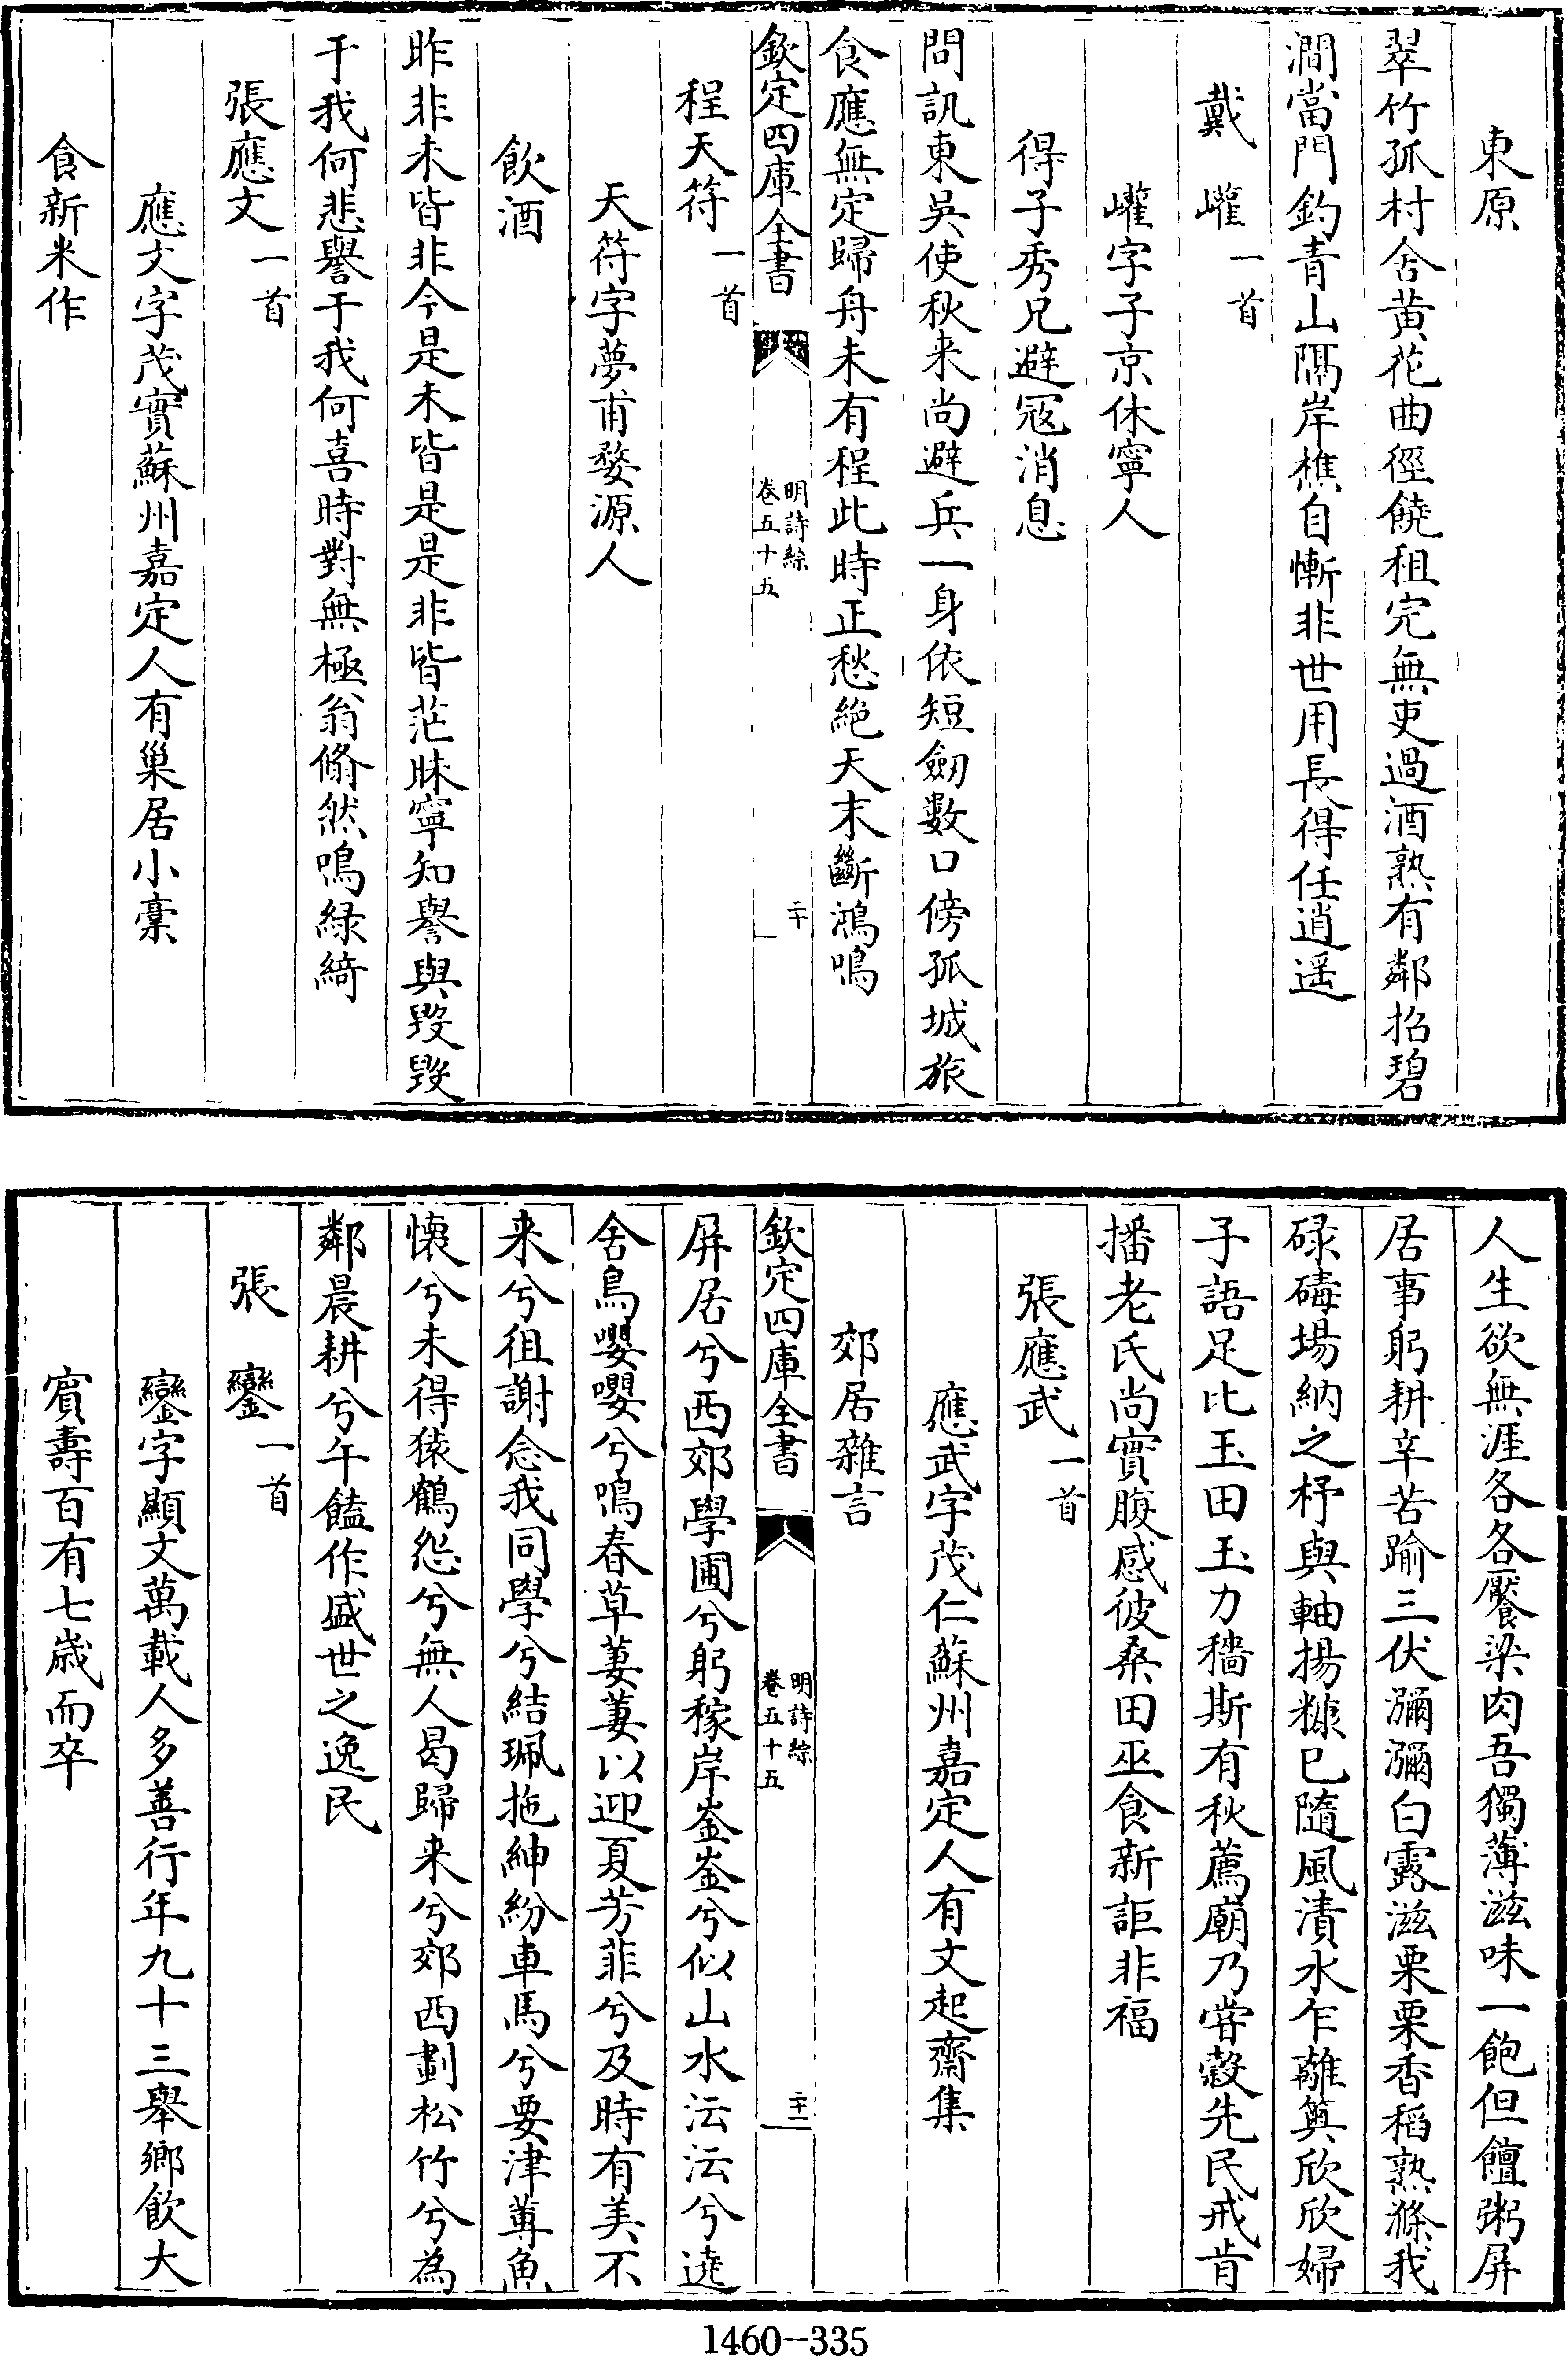 東原
翠竹孤村舍黄花曲徑饒租完無吏過酒熟有鄰招碧
澗當門釣青山隔岸樵自慚非世用長得任逍遥
戴㠢一首
㠢字子京休寧人
得子秀兄避冦消息
問訊東吳使秋来尚避兵一身依短劒數口傍孤城旅
食應無定歸舟未有程此時正愁絶天末斷鴻鳴
欽定四庫全書
明詩綜
卷五十五
二十
程天符一首
天符字夢甫婺源人
飲酒
昨非未皆非今是未皆是是非皆茫昧寧知譽與毀毀
于我何悲譽于我何喜時對無極翁翛然鳴緑綺
張應文一首
應文字茂實蘇州嘉定人有巢居小稾
食新米作
人生欲無涯各各饜梁肉吾獨薄滋味一飽但饘粥屏
居事躬耕辛苦踰三伏瀰瀰白露滋栗栗香稻熟滌我
碌碡場納之杼與軸揚糠已隨風漬水乍離䉛欣欣婦
子語足比玉田玉力穡斯有秋薦廟乃甞穀先民戒肯
播老氏尚實腹感彼桑田巫食新詎非福
張應武一首
應武字茂仁蘇州嘉定人有文起齋集
郊居雜言
欽定四庫全書
明詩綜
卷五十五
二十一
屏居兮西郊學圃兮躬稼岸崟崟兮似山水沄沄兮遶
舍鳥嚶嚶兮鳴春草萋萋以迎夏芳菲兮及時有美不
来兮徂謝念我同學兮結珮拖紳紛車馬兮要津蓴魚
懐兮未得猿鶴怨兮無人曷歸来兮郊西劃松竹兮為
鄰晨耕兮午饁作盛世之逸民
張鑾一首
鑾字顯文萬載人多善行年九十三舉鄉飲大
賓壽百有七歲而卒
1460-335